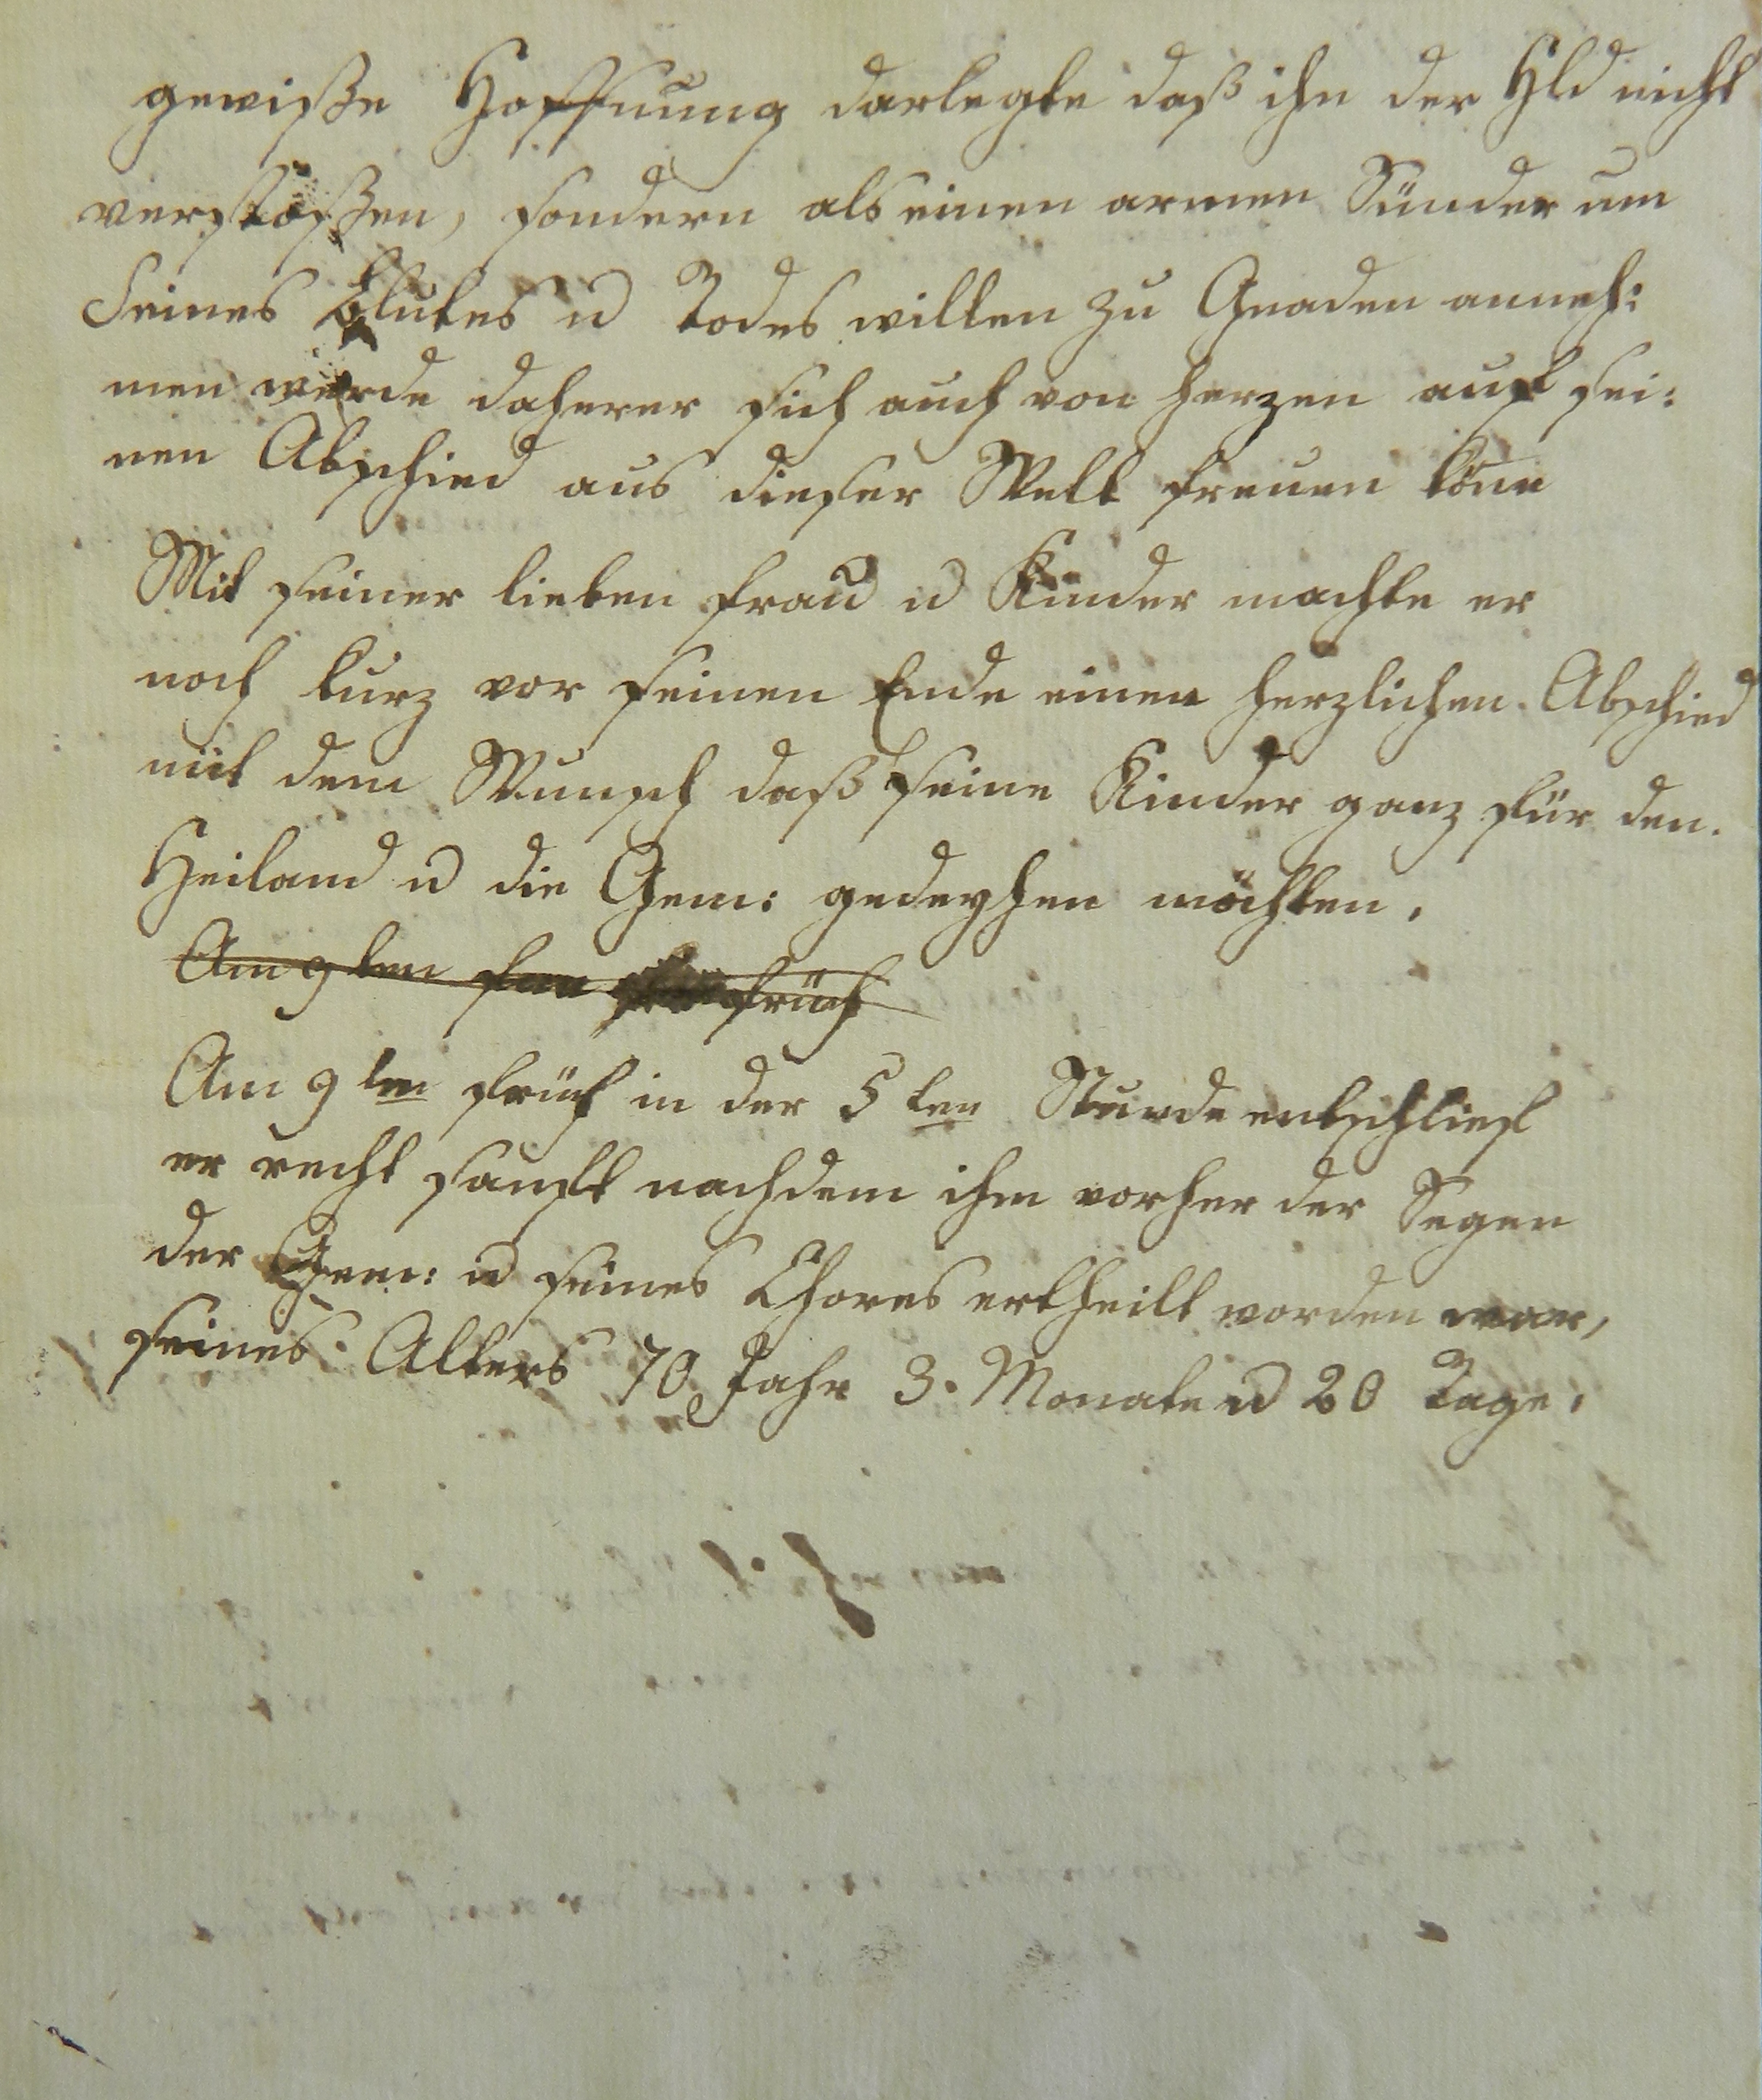 gewiße Hoffnung darlegte daß ihn der Hld nicht
verstoßen, sondern als einen armen Sünder um
Seines Blutes u Todes willen zu Gnaden anneh:
men werde daherer sich auch von Herzen auf sei:
nen Abschied aus dieser Welt freuen köne
Mit seiner lieben Frau u Kinder machte er
noch kurz vor seinen Ende einen herzlichen Abschied
mit dem Wunsch daß seine Kinder ganz für den
Heiland u die Gem: gedeyhen möchten.
Am 9 ten früh
Am 9 ten früh in der 5 ten Stunde entschlief
er recht sanft nachdem ihm vorher der Segen
der Gem: u seines Chores ertheilt worden war,
seines Alters 70 Jahr 3. Monate u 20 Tage.